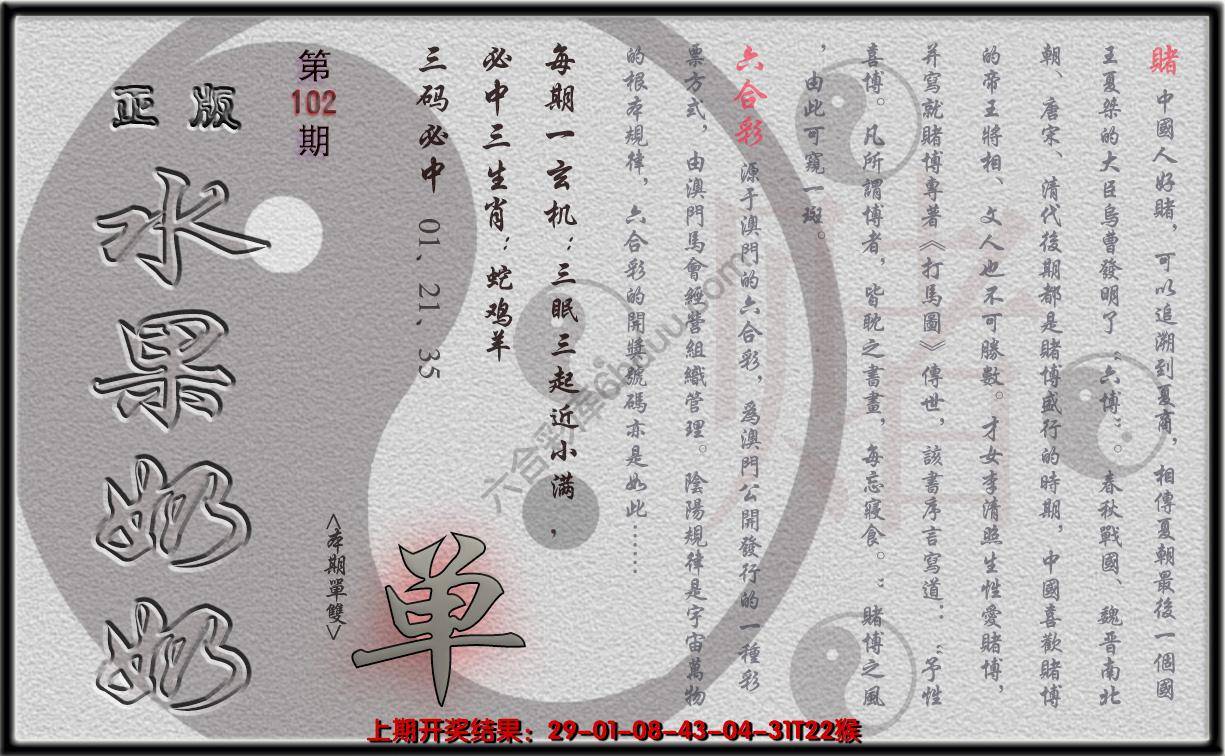 賭 中國人好賭，可以追溯到夏商，相傳夏朝最後一個國
王夏桀的大臣烏曹發明了“六博”。春秋戰國、魏晋南北
朝、唐宋、清代後期都是賭博盛行的時期，中國喜歡賭博
的帝王將相、文人也不可勝數。才女李清照生性愛賭博，
并寫就賭博專著《打馬圖》傳世，該書序言寫道：“予性
喜博。凡所謂博者，皆耽之書畫，每忘寢食。”賭博之風
，由此可窺一斑。
六合彩 源于澳門的六合彩，爲澳門公開發行的一種彩
票方式，由澳門馬會經營組織管理。陰陽規律是宇宙萬物
的根本規律，六合彩的開獎號碼亦是如此……
每期一玄机：三眠三起近小满，
必中三生肖：蛇鸡羊
三码必中 01、21、35
第
102
期
<本期單雙>
单
正版
水果奶奶
六合彩库6huuu.com
上期开奖结果：29-01-08-43-04-31T22猴